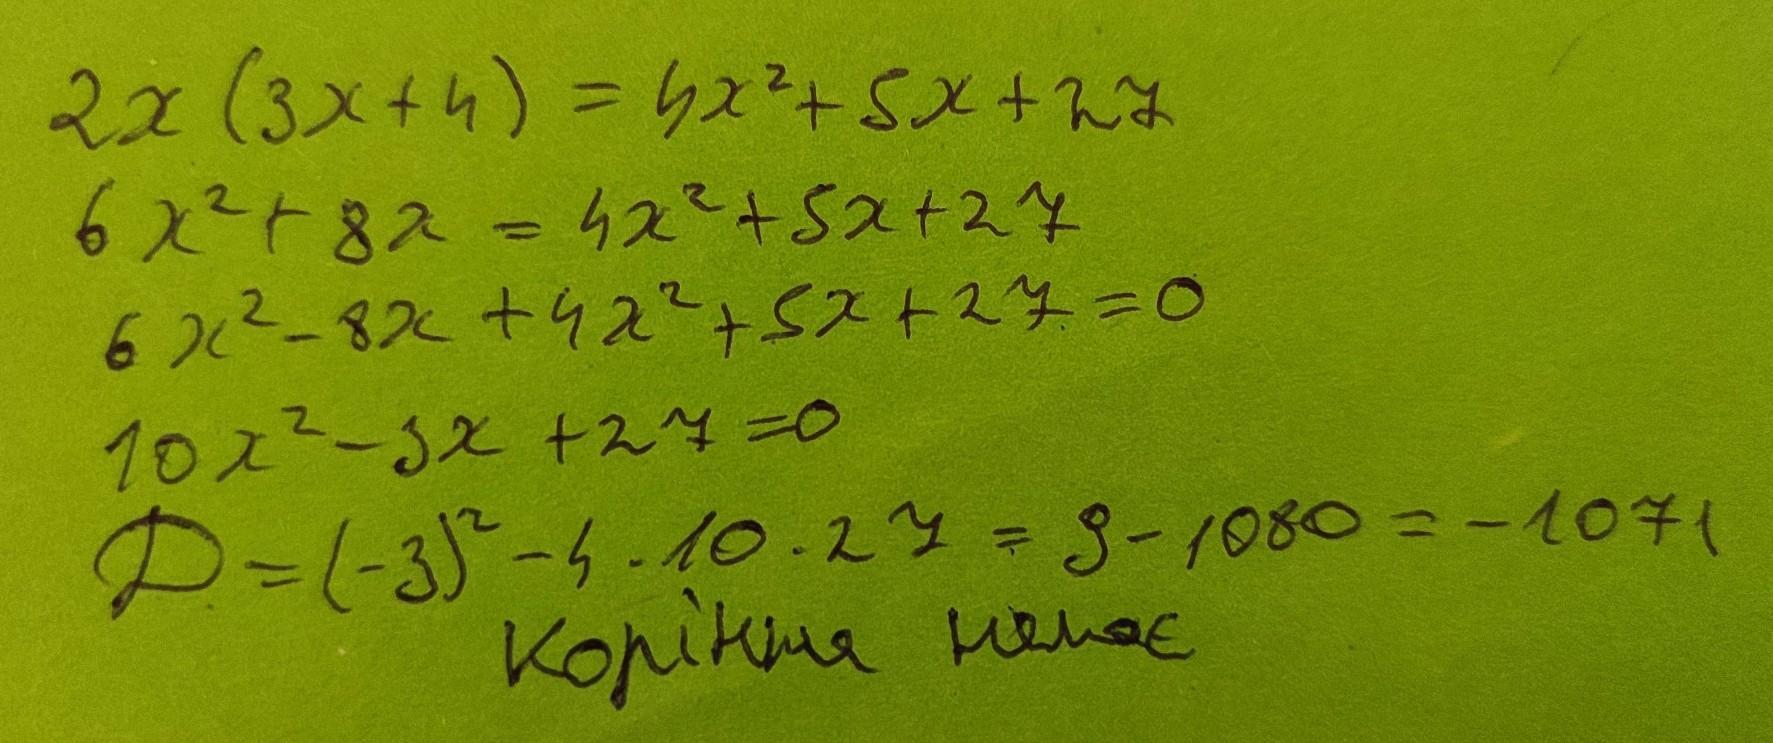 2x (3x+4) = 4x²+5x+27
6x²+8x = 4x²+5x+27
6x²-8x+4x²+5x+27=0
10x²-3x+27=0
D=(-3)²-4·10·27=9-1080=-1071
Коріння немає